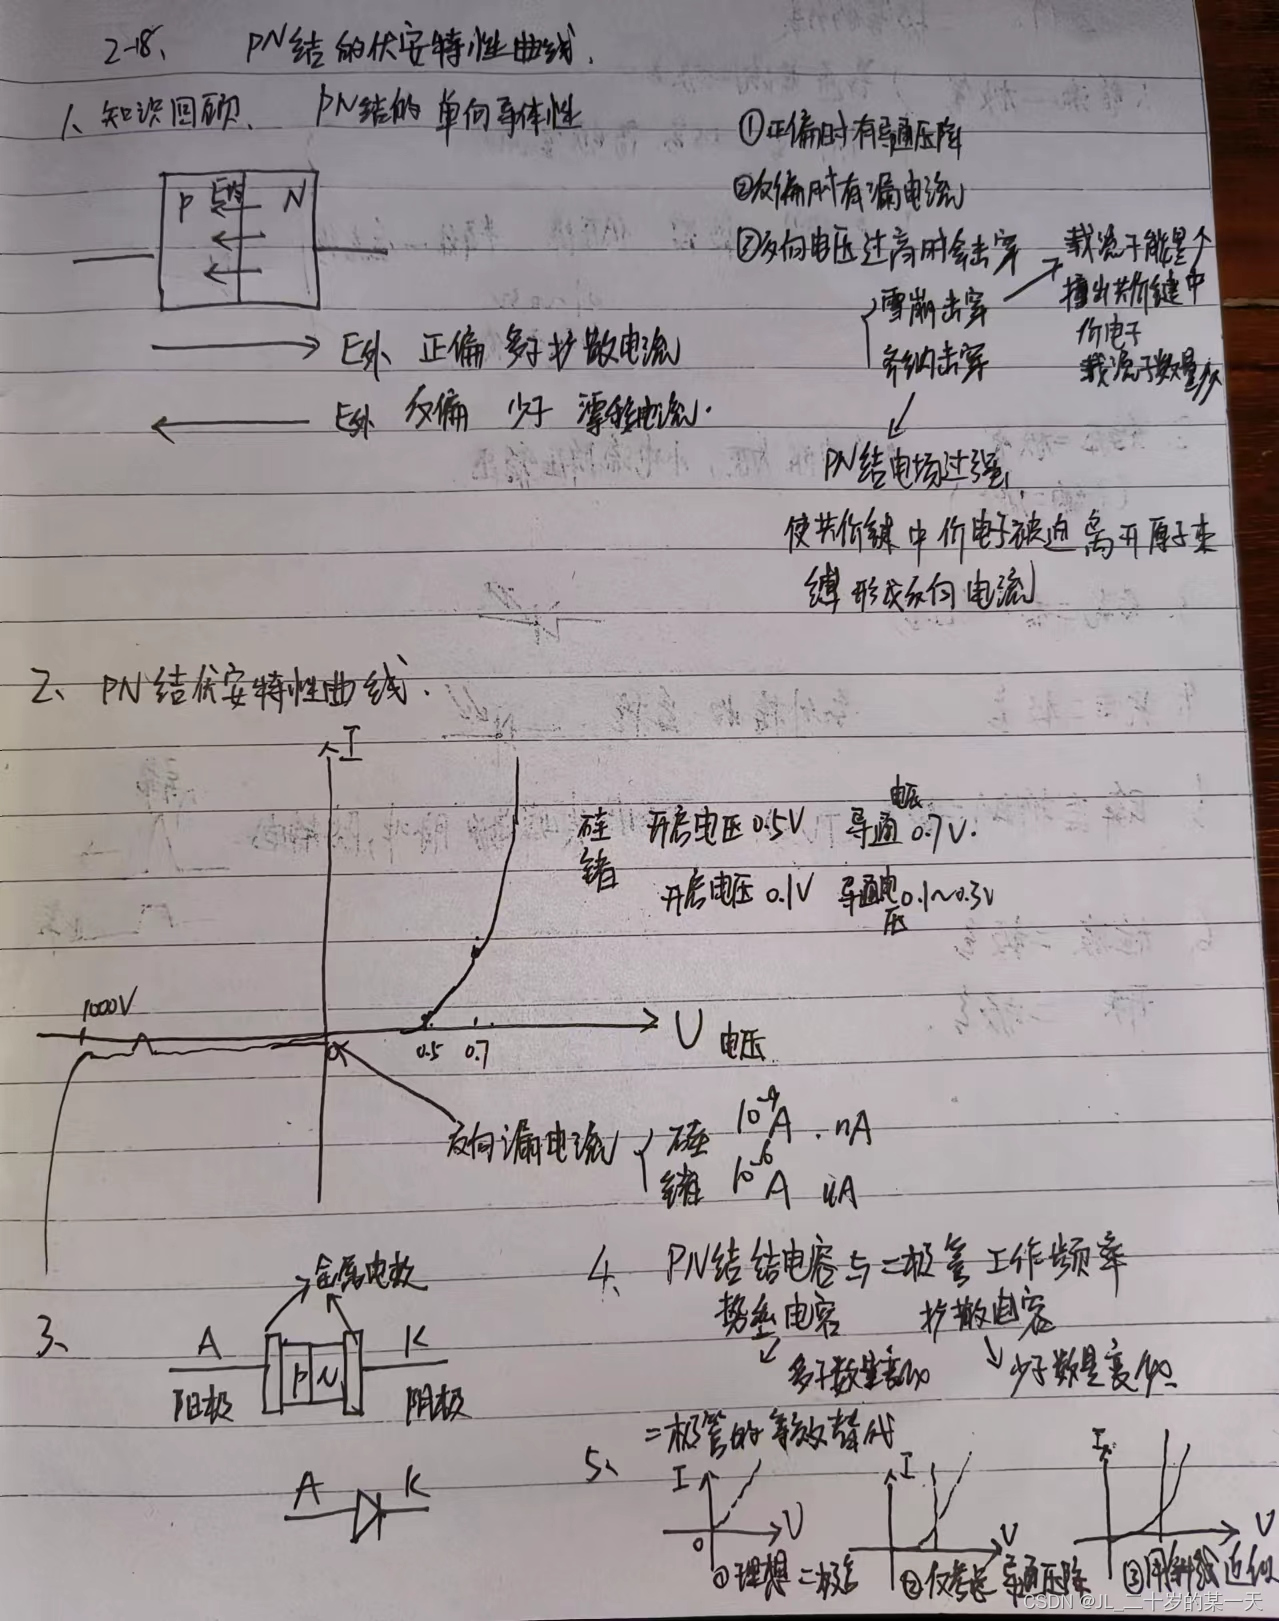 2-18、 PN结的伏安特性曲线.
1、知识回顾、 PN结的单向导体性
①正偏时有导通压降
②反偏时有漏电流
③反向电压过高时会击穿
雪崩击穿
齐纳击穿
载流子能量↑
撞出共价键中
价电子
载流子数量↑
PN结电场过强,
使共价键中价电子被迫离开原子束
缚形成反向电流
P E内 N
E外 正偏 多子扩散电流
E外 反偏 少子 漂移电流.
2、PN结伏安特性曲线.
I
硅 开启电压0.5V 导通电压0.7V.
锗 开启电压0.1V 导通电压0.1~0.3V
1000V
0 0.5 0.7 U 电压
反向漏电流
硅 10⁻⁹A . nA
锗 10⁻⁶A uA
3、
金属电极
A P N K
阳极 阴极
A K
4、PN结结电容与二极管工作频率
势垒电容 扩散电容
多子数量变化 少子数量变化
5、二极管的等效替代
I U 0
①理想二极管
I U
②仅考虑导通压降
I U
③用斜线近似
CSDN @JL_二十岁的某一天